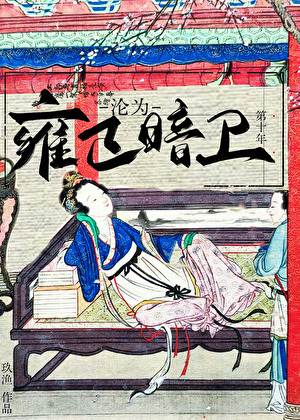 沦为
雍正暗卫
第十年
玖渔 作品